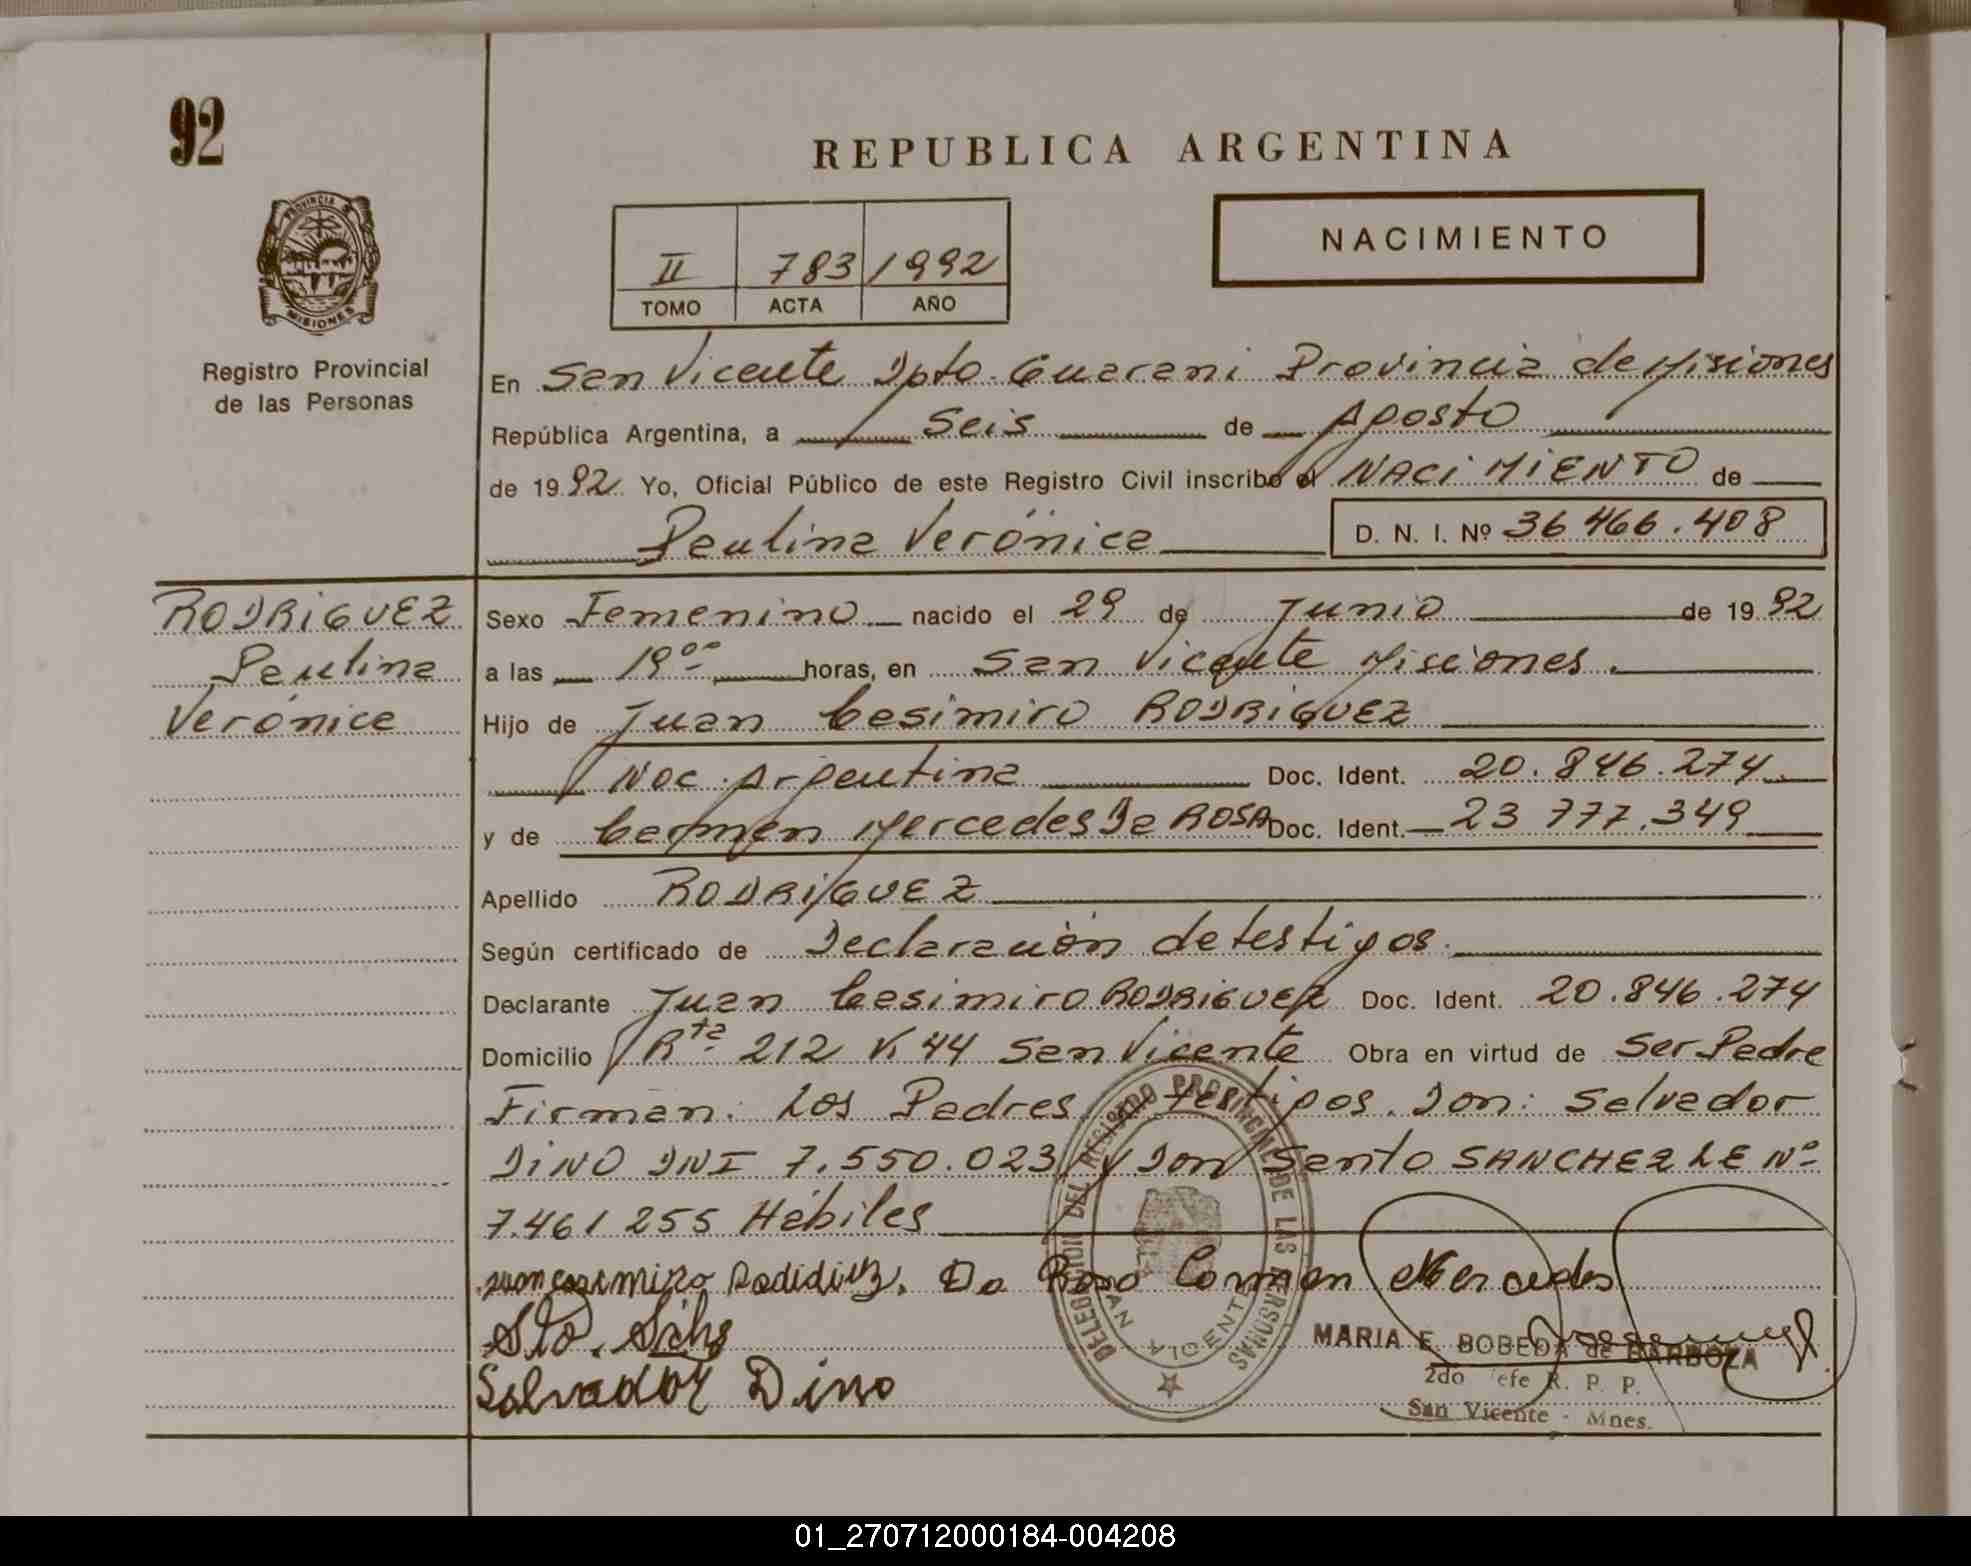 92
REPUBLICA ARGENTINA
PROVINCIA D
MISIONES
Registro Provincial
de las Personas
II 783 1992
TOMO ACTA AÑO
NACIMIENTO
En San Vicente Dpto. Guarani Provincia de Misiones
República Argentina, a Seis de Agosto
de 1992 Yo, Oficial Público de este Registro Civil inscribo el NACIMIENTO de
Paulina Verónica D. N. I. Nº 36466.408
RODRIGUEZ
Paulina
Verónica
Sexo Femenino nacido el 29 de Junio de 1992
a las 19⁰⁰ horas, en San Vicente Misiones.
Hijo de Juan Casimiro RODRIGUEZ
Nac. Argentina Doc. Ident. 20.846.274
y de Carmen Mercedes Da ROSA Doc. Ident. 23 777.349
Apellido RODRIGUEZ
Según certificado de Declaración de testigos.
Declarante Juan Casimiro RODRIGUEZ Doc. Ident. 20.846.274
Domicilio Rta 212 K 44 San Vicente Obra en virtud de Ser Padre
Firman: Los Padres y testigos. Don: Salvador
DINO DNI 7.550.023 y Don Santo SANCHEZ LE Nº
7.461 255 Hábiles
Da Rosa Carmen Mercedes
Sto. Schz
Salvador Dino
DELEGACION DEL REGISTRO PROVINCIAL DE LAS PERSONAS
SAN VICENTE
MARIA E. BOBEDA de BARBOZA
2do Jefe R. P. P.
San Vicente - Mnes.
01_270712000184-004208